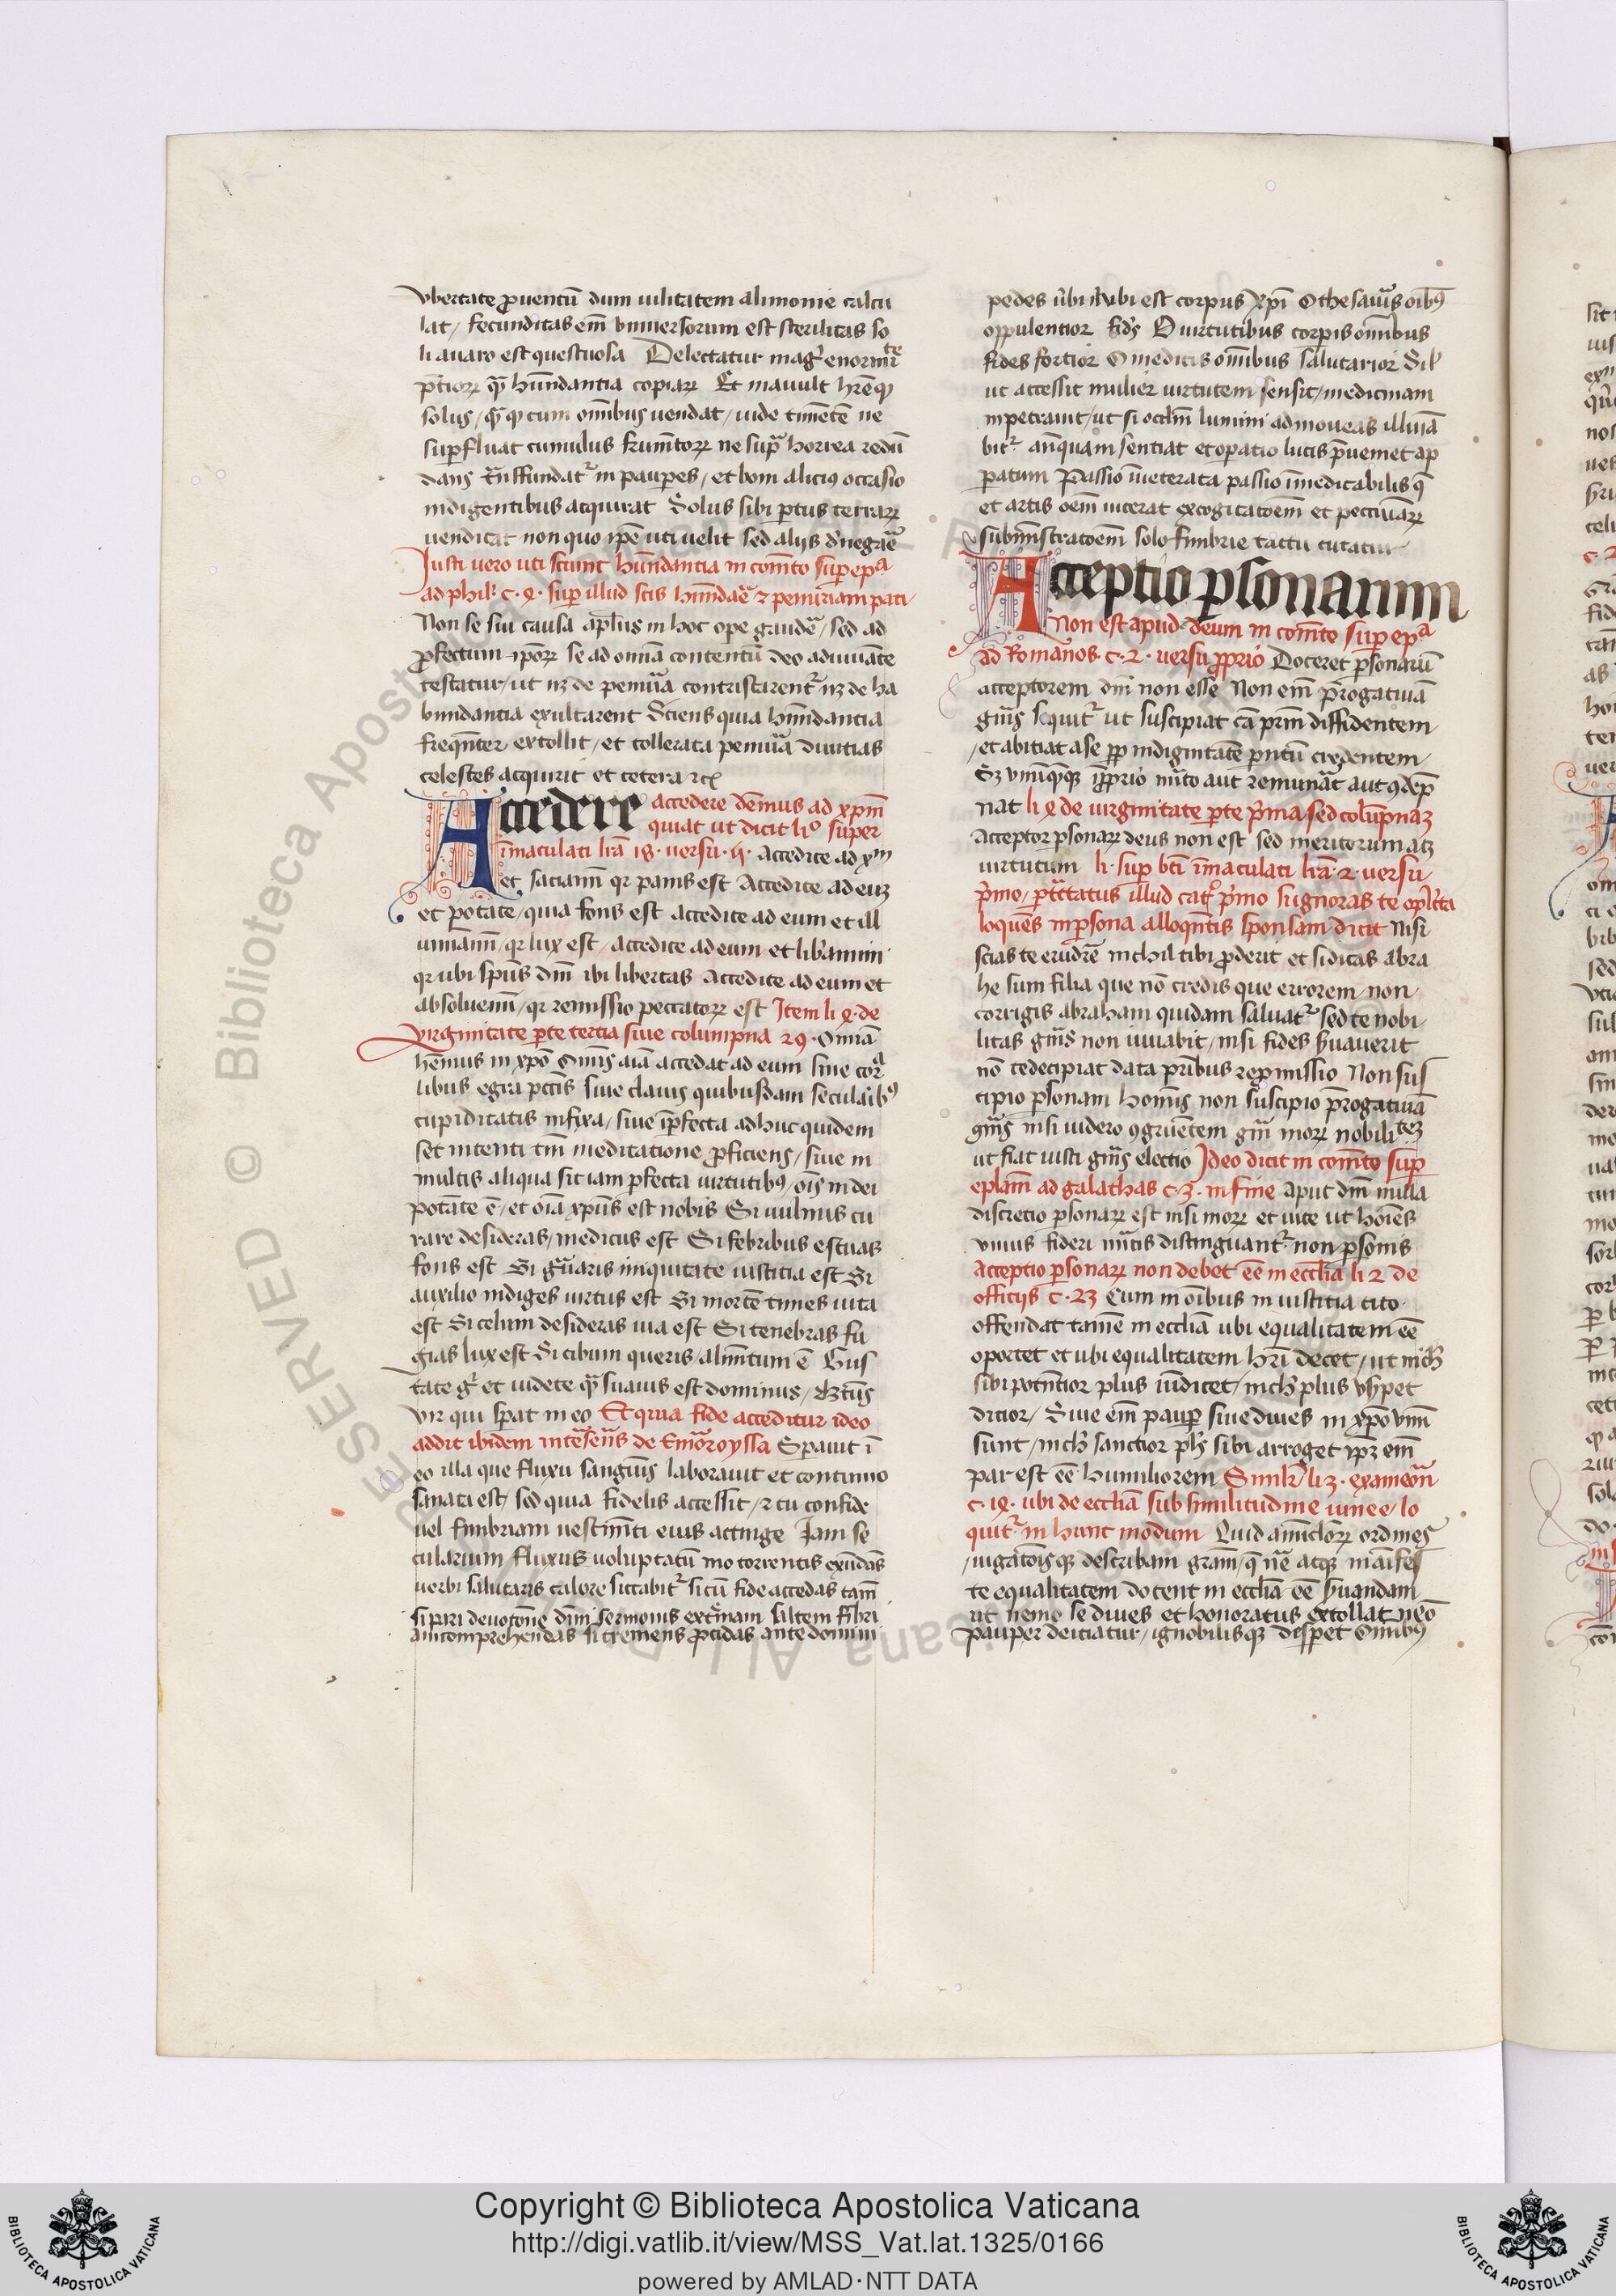 vbertate ꝓuentū dum uilitatem alimonie calcu
lat / fecunditas em̄ vniuersorum est sterilitas so
li auaro est questuosa Delectatur mag̕ enormi
p̄tiorꝝ qͣ hn̄dantia copiarꝝ Et mauult
solus / qͣ cum om̄ibus uendat / uide timētē ne
suꝑfluat cumulus frum̄torꝝ ne supͣ horrea redū
dans in pauꝑes / et boni alicuiꝰ occasio
indigentibus acquirat Solus sibi ꝑtus terrarꝝ
uendicat non quo ip̄e uti uelit sed alijs
Iusti vero uti sciunt hn̄dantia in com̄to suꝑ epͣ
ad phil̕ c. 4. suꝑ illud scis et penuriam pati
Non se sui causa ap̄lus in hoc ope / sed ad
ꝓfectum ip̄orꝝ se ad omnia contentū deo adiuuāte
testatur / ut nꝫ de penuͥa contristarent᷑ nꝫ de ha
bundantia exultarent Sciens quia hn̄dantia
freqn̄ter extollit / et tollerata penuͥa diuitias
celestes acquirit et cetera
Accedere accedere dēmus ad xp̄m
quiat ut dicit liº super
īmaculati lrā 18. versu. ii. Accedite ad xᵐ
et saciamī qr panis est Accedite ad eūꝫ
et potate / quia fons est accedite ad eum et ill
uminam̄ / qr lux est / accedite ad eum et lib̄amini
qr ubi spūs dm̄ ibi libertas Accedite ad eum et
absoluem̄ / qr remissio peccatorꝝ est Item li 4. de
virginitate ꝑte tertia siue columpna 29. Omnia
hēmus in xpō Om̄is aīa accedat ad eum siue corꝑa
libus egra pctīs siue clauis quibusdam seculaīb9
cupiditatis infixa / siue īꝑfecta adhuc quidem
set intenti tm̄ meditatione ꝓficiens / siue in
multis aliqua sit iam ꝑfecta uirtutibꝰ / oīs in dei
potāte ē / et oīa xp̄us est nobis Si uulnus cu
rare desideras / medicus est Si febribus estuas
fons est Si gͣuaris iniquitate iustitia est Si
auxilio indiges uirtus est Si mortē times uita
est Si celum desideras uia est Si tenebras fu
gias lux est Si cibum queris / alim̄tum ē Gus
tate gͦ et uidete qͣ suauis est dominus / btūs
vir qui sꝑat in eo Et quia fide acceditur ideo
addit ibidem de Emoroyssa Sꝑauit ī
eo illa que fluxu sanguīs laborauit et continuo
sanata est / sed quia fidelis accessit / et tu confide
uel fimbriam uestim̄ti eius attinge Iam se
cularium / fluxus uoluptatū mō torrentis exūdās
uerbi salutaris calore siccabit᷑ si cū fide accedas tam̄
si pari deuotōne diuī sermonis extᷓmam saltem fībri
am comprehendas si tremens ꝓcidas ante domini
pedes ubi est corpus xpī O thesaurꝰ oībꝫ
oppulentior fid̕s O uirtutibus corꝑis om̄ibus
fides fortior O medicis om̄ibus salutarior
ut accessit mulier uirtutem sensit / medicinam
inpetrauit / ut si oclm̄ lumini admoueas illuīa
bit᷑ anq̄uam sentiat et oꝑatio lucis p̄ueniet ap
ꝑatum Passio īueterata passio īmedicabilis q̄
et artis oēm uicerat excogitatōem et pecuniarꝝ
submīstratōem solo fimbrie tactu curatur
Acceptio ꝑsonarum
Non est apud deum in com̄to suꝑ epͣ
ad Romanos c. 2. versu ꝓprio Doceret ꝑsonarū
acceptorem dm̄ non esse Non em̄ p̄rogatiuā
gn̄is sequit᷑ ut suscipiat cā prm̄ diffidentem
/ et abiciat a se ꝓp indignitatē pn̄tū credentem /
Sꝫ vnūquēqꝫ ꝓprio m̄ito aut remunāt aut ꝯdēp
nat li 4 de uirginitate ꝑte p̄ma sed colūpnaꝫ
Acceptor ꝑsonarꝝ deus non est sed meritorum atꝫ
uirtutum li. suꝑ bt̄i īmaculati lrā 2. versu
p̄mo / illud catͦ p̄mo si ignoras te
loquēs in ꝑsona alloqn̄tis sponsam dicit Nisi
scias te erudire nichil tibi ꝓderit et si dicas abra
he sum filia que nō credis que errorem non
corrigis abraham quidam saluat᷑ sed te nobi
litas gn̄is non iuuabit / nisi fides suauerit
nō te decipiat data p̄ribus reꝓmissio Non sus
cipio ꝑsonam hom̄is non suscipio p̄rogatiuā
gn̄is nisi uidero ꝯgruētem gn̄i morꝝ nobilitateꝫ
ut fiat iusti gn̄is electio Ideo dicit in com̄to suꝑ
eplam̄ ad galathas c. 3. in fine aput dm̄ nulla
discretio ꝑsonarꝝ est nisi morꝝ et uite ut hoīes
vnius fidei m̄itis distinguant᷑ non ꝑsonis
Acceptio ꝑsonarꝝ non debet eē in eccl̄ia li 2 de
officijs c. 23 Cum in oībus in iustitia cito
offendat tamē in eccl̄iā ubi equalitatem eē
oportet et ubi equalitatem hr̄i decet / ut nich̕
sibi potn̄tior plus iudicet / nich̕ plus vsurpet
ditior / Siue em̄ pauꝑ siue diues in xpō vnū
sunt / nich̕ sanctior pl̕s sibi arroget ip̄ꝫ em̄
par est eē humiliorem Similr̄ li 3. exameōn̄
c. 14. ubi de eccl̄iā sub similitudine uinee / lo
quit᷑ in hunc modum Quid amīclorꝝ ordines
/ iugatōisqꝫ describam gram̄ / q̄ atqꝫ māifes
te equalitatem docent in eccl̄iā eē suandam
ut nemo se diues et honoratus extollat
pauper deiciatur / ignobilisqꝫ desꝑet Omībꝰ
Copyright © Biblioteca Apostolica Vaticana
http://digi.vatlib.it/view/MSS_Vat.lat.1325/0166
powered by AMLAD·NTT DATA